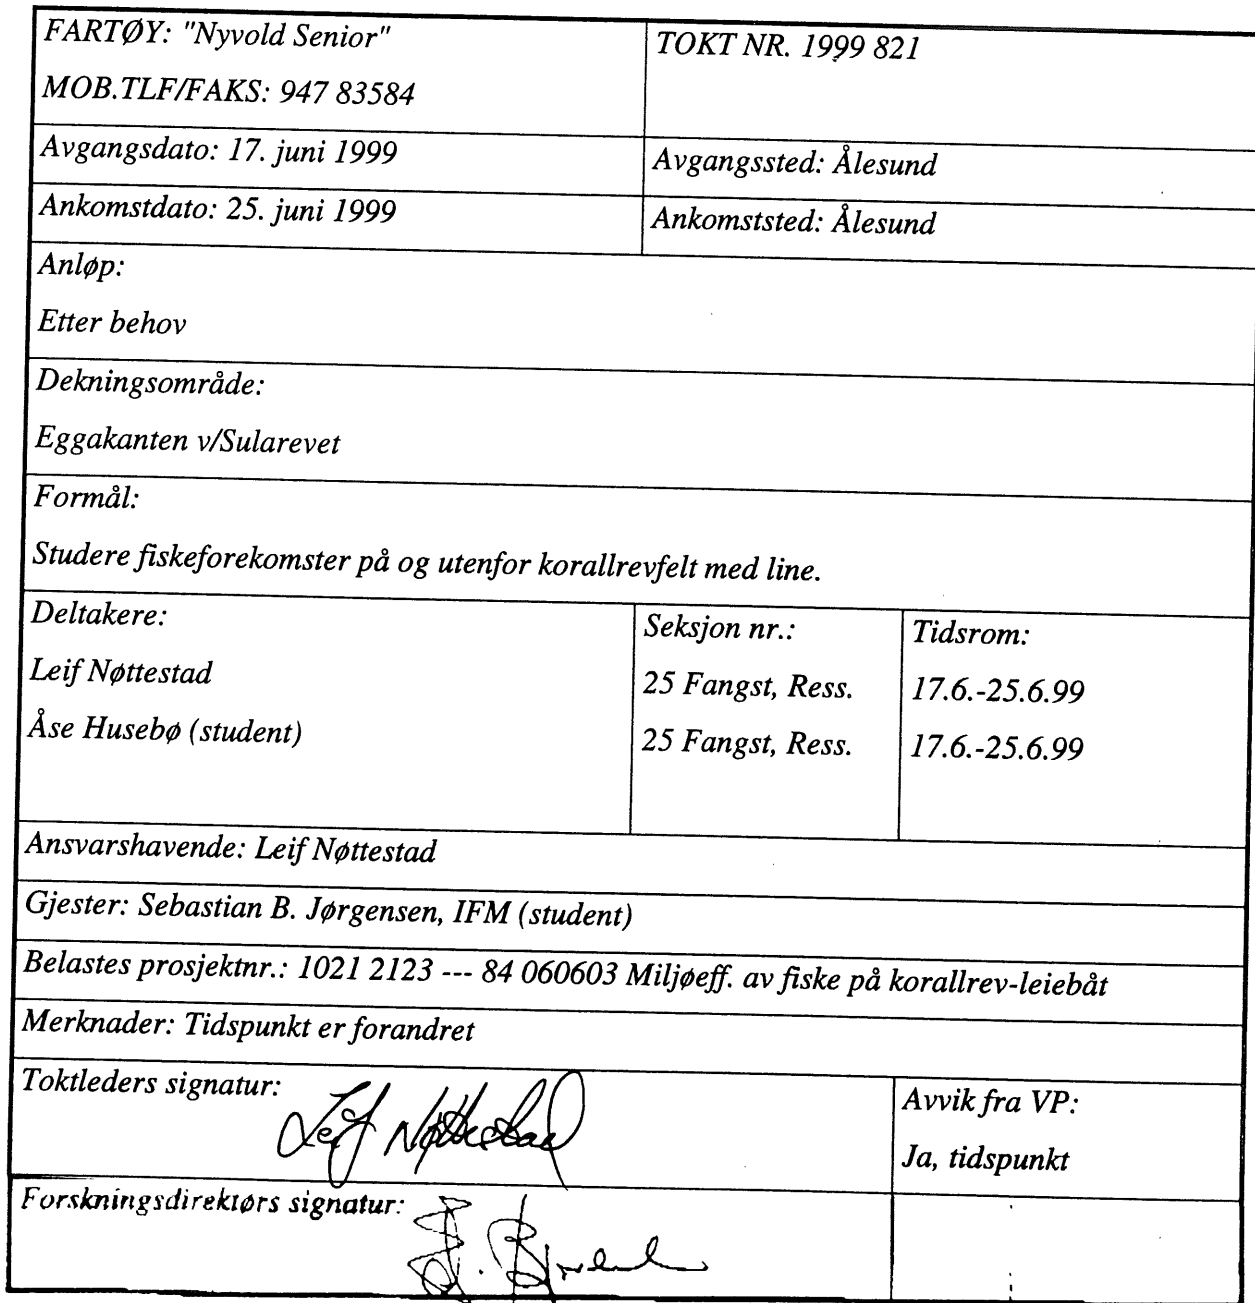 FARTØY: "Nyvold Senior"
MOB.TLF/FAKS: 947 83584
TOKT NR. 1999 821
Avgangsdato: 17. juni 1999
Avgangssted: Ålesund
Ankomstdato: 25. juni 1999
Ankomststed: Ålesund
Anløp:
Etter behov
Dekningsområde:
Eggakanten v/Sularevet
Formål:
Studere fiskeforekomster på og utenfor korallrevfelt med line.
Deltakere:
Leif Nøttestad
Åse Husebø (student)
Seksjon nr.:
25 Fangst, Ress.
25 Fangst, Ress.
Tidsrom:
17.6.-25.6.99
17.6.-25.6.99
Ansvarshavende: Leif Nøttestad
Gjester: Sebastian B. Jørgensen, IFM (student)
Belastes prosjektnr.: 1021 2123 --- 84 060603 Miljøeff. av fiske på korallrev-leiebåt
Merknader: Tidspunkt er forandret
Toktleders signatur: Leif Nøttestad
Avvik fra VP:
Ja, tidspunkt
Forskningsdirektørs signatur: